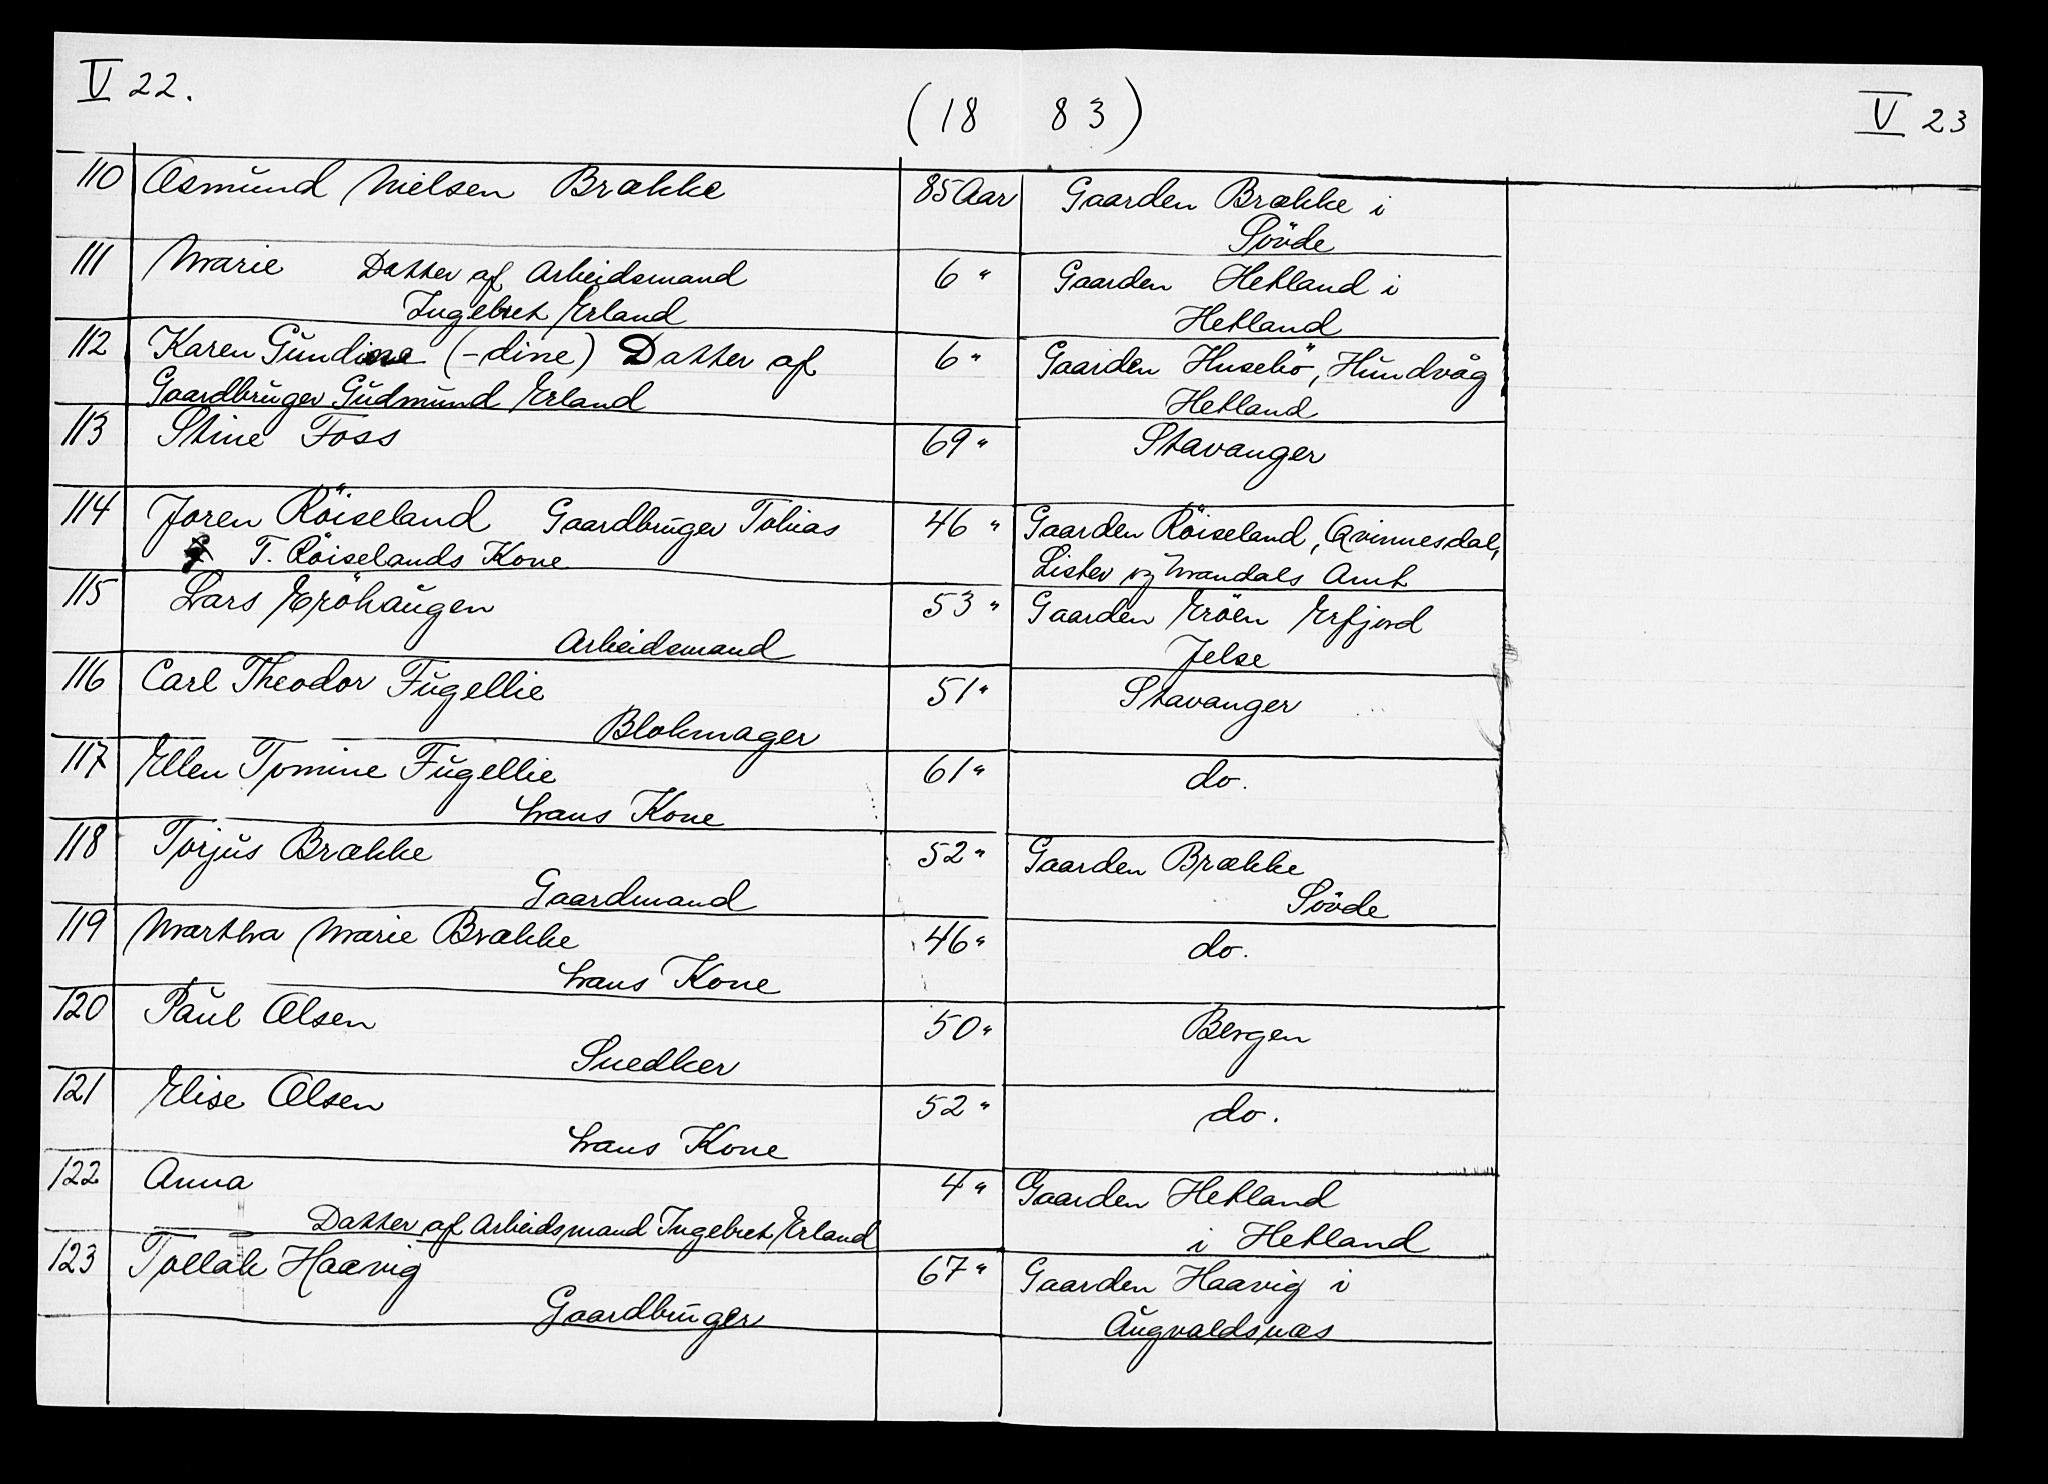 V 22. (18 83) V 23
110 Asmund Nielsen Brække 85 Aar Gaarden Brække i
Søvde
111 Marie Datter af Arbeidsmand 6 " Gaarden Hetland i
Ingebret Erland Hetland
112 Karen Gundine (-dine) Datter af 6 " Gaarden Husebö, Hundvåg
Gaardbruger Gudmund Erland Hetland
113 Stine Foss 69 " Stavanger
114 Joren Röiseland Gaardbruger Tobias 46 " Gaarden Röiseland, Qvinnesdal,
T. Röiselands Kone Lister og Mandals Amt
115 Lars Eröhaugen 53 " Gaarden Eröen Erfjord
Arbeidsmand Jelse
116 Carl Theodor Fugellie 51 " Stavanger
Blokmager
117 Ellen Tomine Fugellie 61 " do.
hans Kone
118 Torjus Brække 52 " Gaarden Brække
Gaardmand Sövde
119 Martha Marie Brække 46 " do.
hans Kone
120 Paul Olsen 50 " Bergen
Snedker
121 Elise Olsen 52 " do.
hans Kone
122 Anna 4 " Gaarden Hetland
Datter af Arbeidsmand Ingebret Erland i Hetland
123 Tollak Haavig 67 " Gaarden Haavig i
Gaardbruger Augvaldsnæs